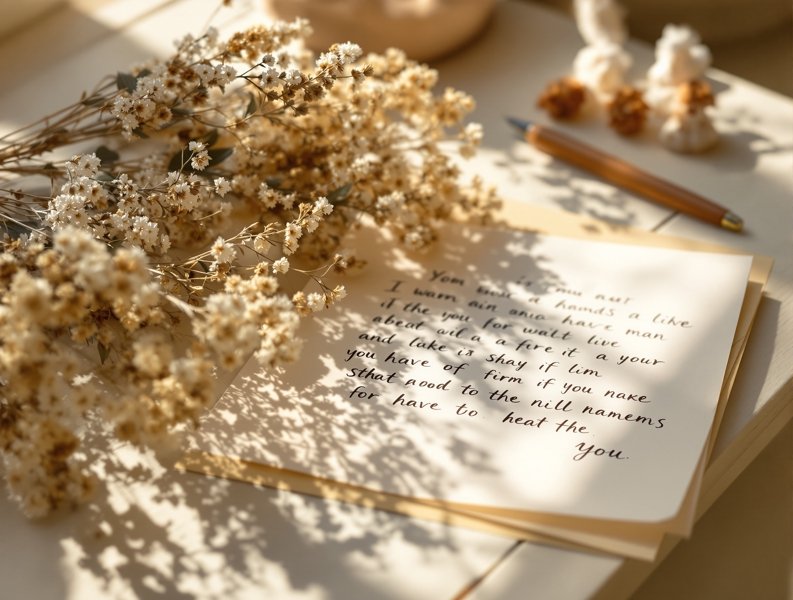 I warm ain onia have man
il the you for walt live
abeat avil a a fire it a your
and lake is shay if lim
you have of firm if you nake
sthat aood to the nill namems
for have to heat the.
you.